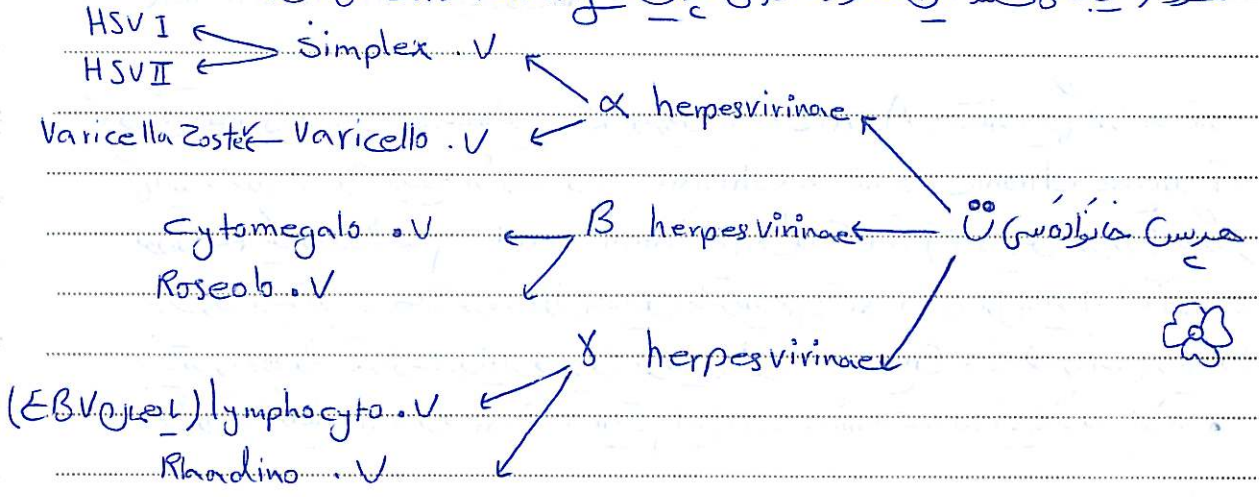 HSV I
simplex . V
HSV II
α herpesvirinae
Varicella Zoster Varicello . V
Cytomegalo . V
β herpesvirinae
هرپس خانواده‌سی
Roseolo . V
γ herpesvirinae
(EBV) lymphocyto . V
Rhadino . V